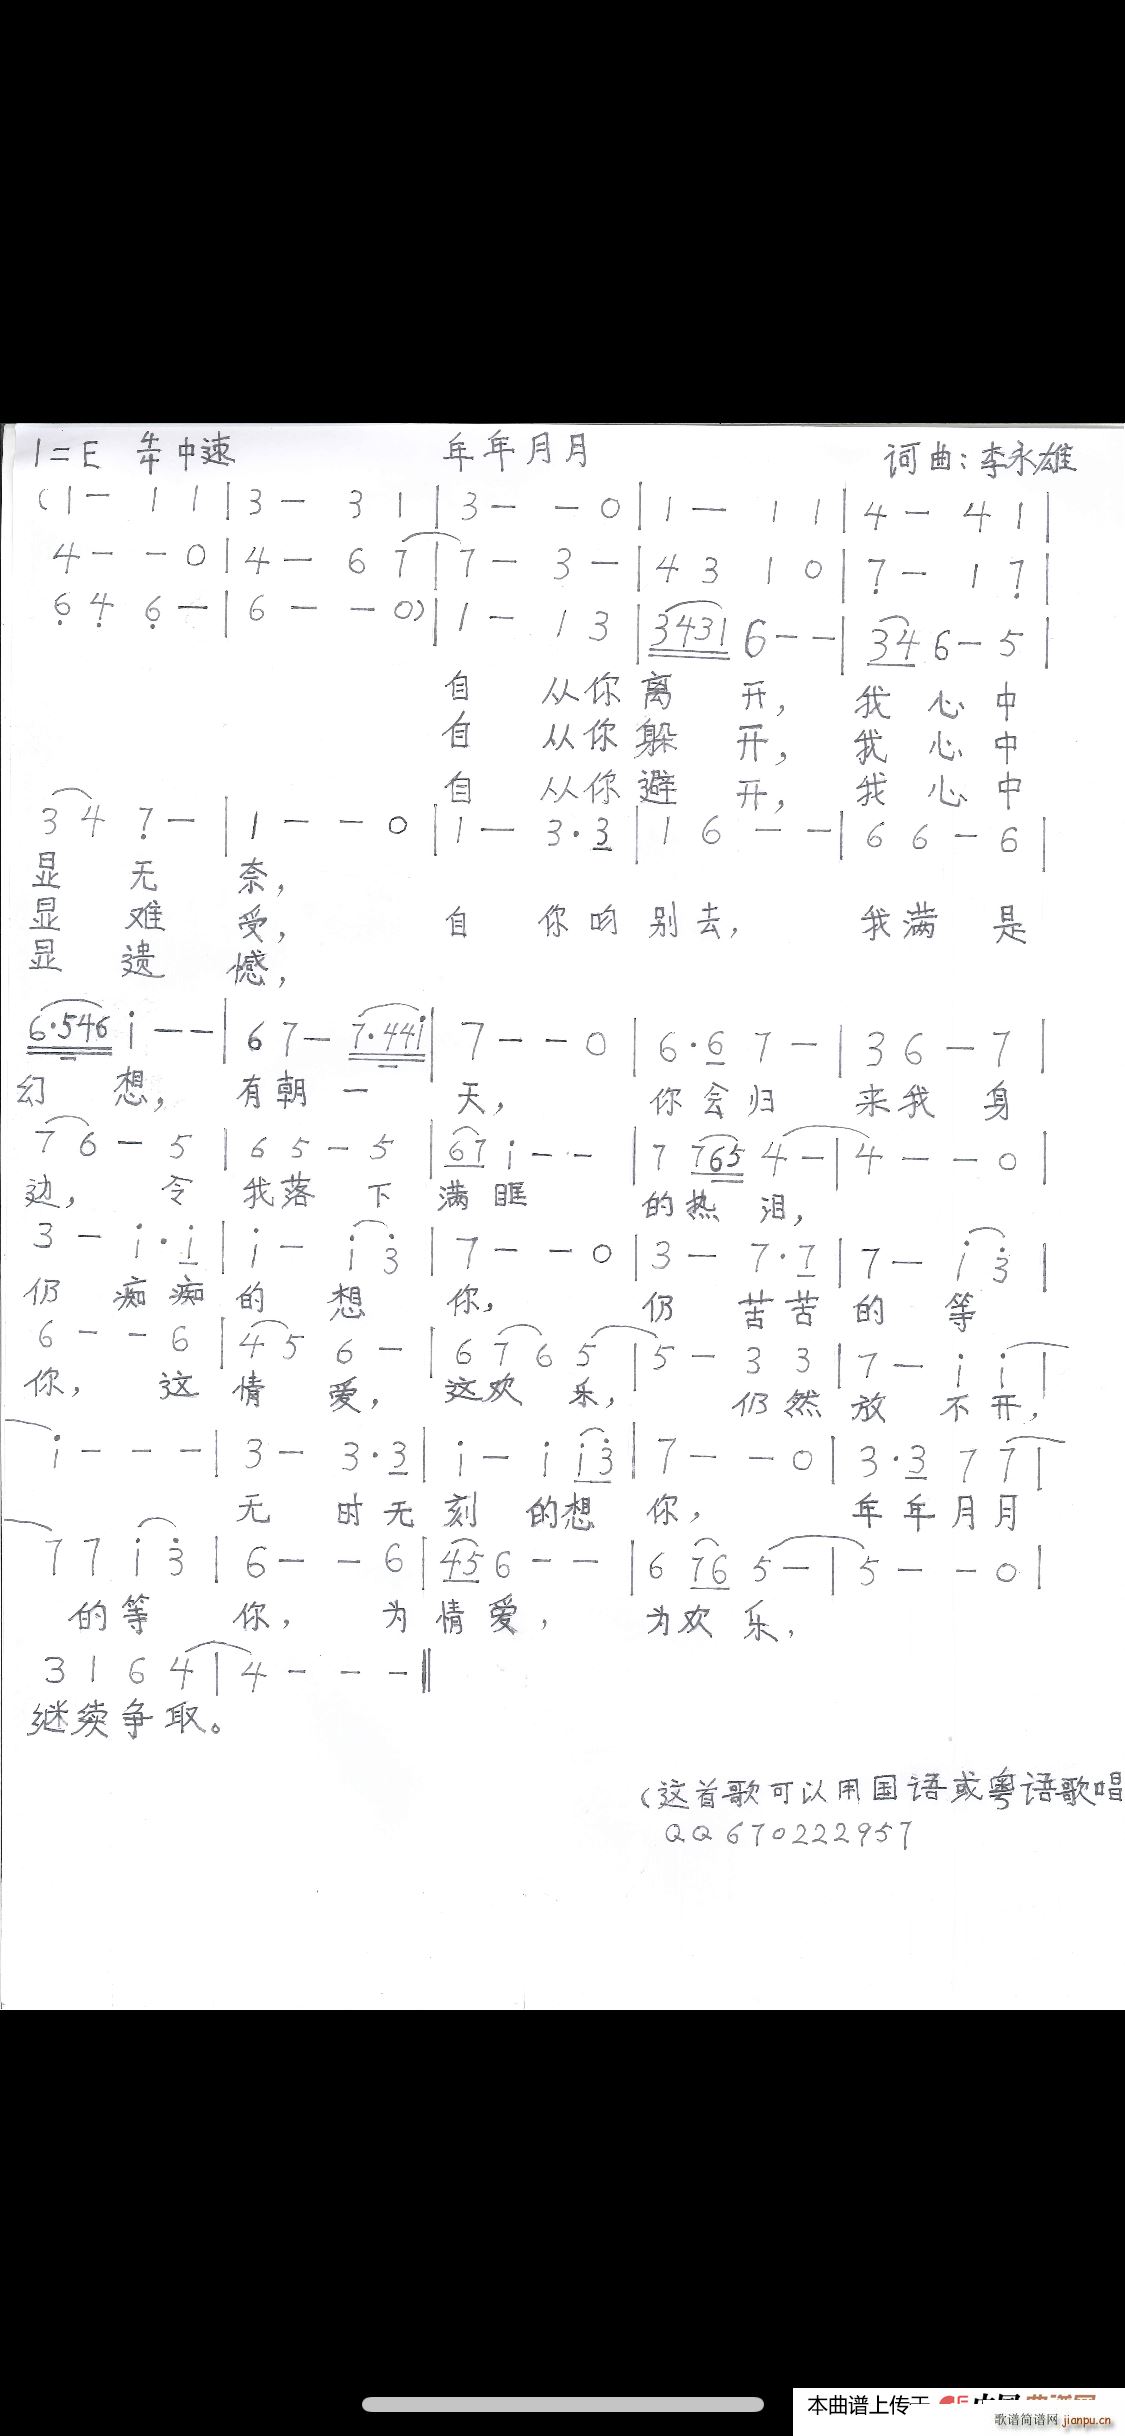 1=E 4/4 中速 年年月月 词曲:李永雄
(1 — 1 1 | 3 — 3 1 | 3 — — 0 | 1 — 1 1 | 4 — 4 1 |
4 — — 0 | 4 — 6 7 | 7 — 3 — | 4 3 1 0 | 7̣ — 1 7̣ |
6̣ 4̣ 6̣ — | 6 — — 0) | 1 — 1 3 | 3431 6 — — | 34 6 — 5 |
自 从你离 开, 我 心 中
自 从你躲 开, 我 心 中
自 从你避 开, 我 心 中
3 4 7̣ — | 1 — — 0 | 1 — 3·3 | 1 6 — — | 6 6 — 6 |
显 无 奈,
显 难 受, 自 你吻 别去, 我满 是
显 遗 憾,
6·546 i — — | 6 7 — 7·44i | 7 — — 0 | 6·6 7 — | 3 6 — 7 |
幻 想, 有朝 一 天, 你会归 来我 身
7 6 — 5 | 6 5 — 5 | 67 i — — | 7 765 4 — | 4 — — 0 |
边, 令 我落 下 满 眶 的热 泪,
3 — i·i | i — i 3̇ | 7 — — 0 | 3 — 7·7 | 7 — i 3̇ |
仍 痴痴 的 想 你, 仍 苦苦 的 等
6 — — 6 | 4 5 6 — | 6 7 6 5 | 5 — 3 3 | 7 — i i |
你, 这 情 爱, 这欢 乐, 仍然 放 不开,
i — — — | 3 — 3·3 | i — i i3̇ | 7 — — 0 | 3·3 7 7 |
无 时无 刻 的想 你, 年年月月
7 7 i 3̇ | 6 — — 6 | 45 6 — — | 6 76 5 — | 5 — — 0 |
的等 你, 为 情 爱, 为欢 乐,
3 1 6 4 | 4 — — — ‖
继续争取。
(这首歌可以用国语或粤语歌唱
QQ 670222957
本曲谱上传于
歌谱简谱网 jianpu.cn